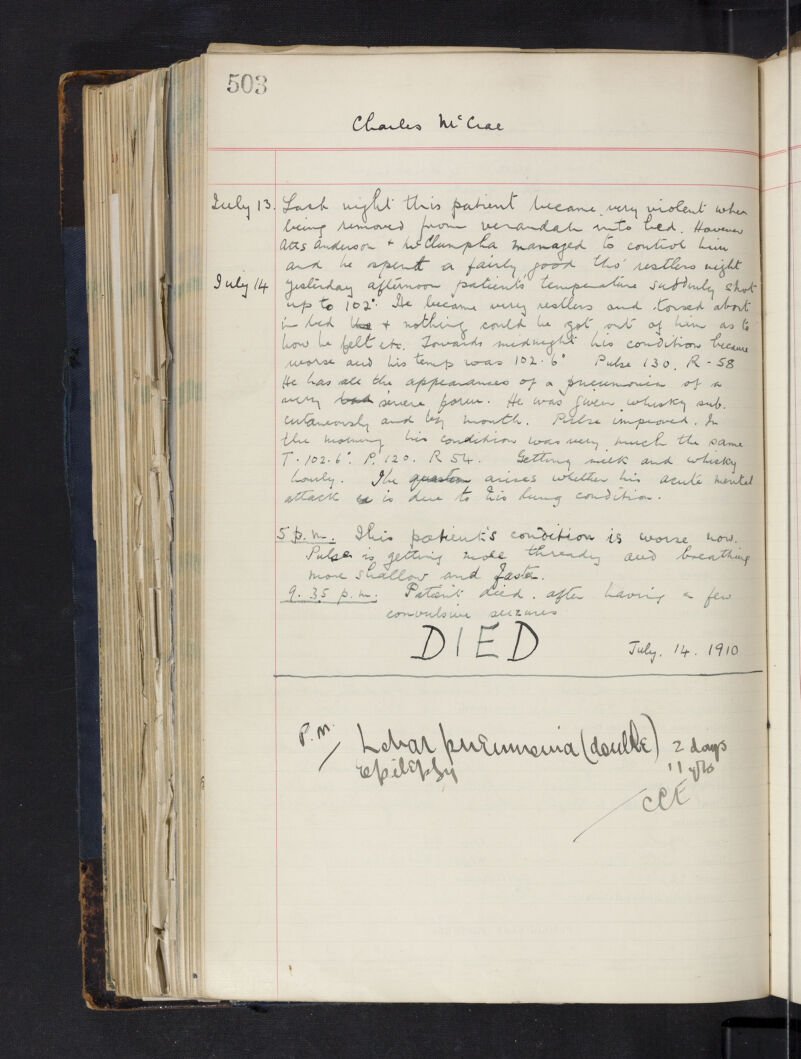 503
Charles McCrae
July 13. Last night this patient became very violent when
being removed from verandah into bed. However
Atts Anderson + McClumpha managed to control him
and he spent a fairly good tho' restless night
July 14 Yesterday afternoon patients' temperature suddenly shot
up to 102°. He became very restless and tossed about
in bed + nothing could be got out of him as to
how he felt etc. Towards midnight his condition became
worse and his temp was 102.6° Pulse 130. R - 58
He has all the appearances of a pneumonia of a
very bad severe form. He was given whisky sub.
cutaneously and by mouth. Pulse improved. In
the morning his condition was very much the same
T. 102.6°. P. 120. R 54. Getting milk and whisky
hourly. The question arises whether his acute mental
attack is due to his lung condition.
5 p.m. This patient's condition is worse now.
Pulse is getting more thready and breathing
more shallow and faster.
9.35 p.m. Patient died after having a few
convulsive seizures
DIED July. 14. 1910
P.M. Lobar pneumonia (double) 2 days
Epilepsy 11 yrs
CCE